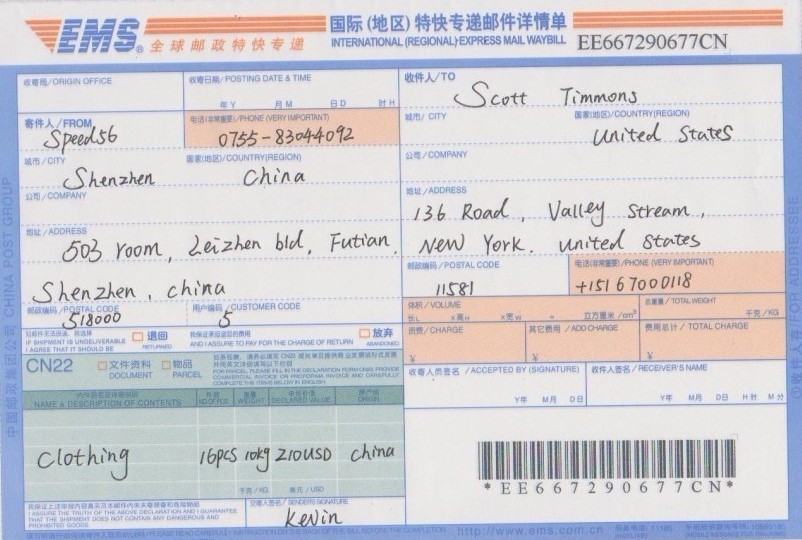 EMS® 全球邮政特快专递
国际（地区）特快专递邮件详情单
INTERNATIONAL (REGIONAL) EXPRESS MAIL WAYBILL
EE667290677CN
收寄局/ORIGIN OFFICE
收寄日期/POSTING DATE & TIME
年Y 月M 日D 时H
寄件人/FROM
Speed56
电话(非常重要)/PHONE (VERY IMPORTANT)
0755-83044092
城市/CITY
国家(地区)/COUNTRY(REGION)
Shenzhen China
公司/COMPANY
地址/ADDRESS
503 room, Leizhen bld, Futian.
Shenzhen, china
邮政编码/POSTAL CODE
用户编码/CUSTOMER CODE
518000 5
收件人/TO
Scott Timmons
城市/CITY
国家(地区)/COUNTRY(REGION)
United States
公司/COMPANY
地址/ADDRESS
136 Road, Valley stream,
New York. united states
邮政编码/POSTAL CODE
电话(非常重要)/PHONE (VERY IMPORTANT)
11581 +15167000118
IF SHIPMENT IS UNDELIVERABLE
I AGREE THAT IT SHOULD BE
退回
RETURNED
AND I ASSURE TO PAY FOR THE CHARGE OF RETURN
放弃
ABANDONED
CN22
文件资料
DOCUMENT
物品
PARCEL
NAME & DESCRIPTION OF CONTENTS
件数
NO.OF PCS
重量
WEIGHT
申报价值
DECLARED VALUE
原产国
ORIGIN
Clothing 16pcs 10kg 210USD china
千克/KG 美元/USD
I ASSURE THE TRUTH OF THE ABOVE DECLARATION AND I GUARANTEE
THAT THE SHIPMENT DOES NOT CONTAIN ANY DANGEROUS AND
PROHIBITED GOODS.
交寄人签名/SENDER'S SIGNATURE
Kevin
体积/VOLUME
长L ×高H ×宽W = 立方厘米/cm³
总重量/TOTAL WEIGHT
千克/KG
资费/CHARGE
¥
其它费用/ADD CHARGE
¥
费用总计/TOTAL CHARGE
¥
收寄人员签名/ACCEPTED BY (SIGNATURE)
年Y 月M 日D
收件人签名/RECEIVER'S NAME
年Y 月M 日D 时H 分M
*EE667290677CN*
http://www.ems.com.cn
中国邮政集团公司 CHINA POST GROUP